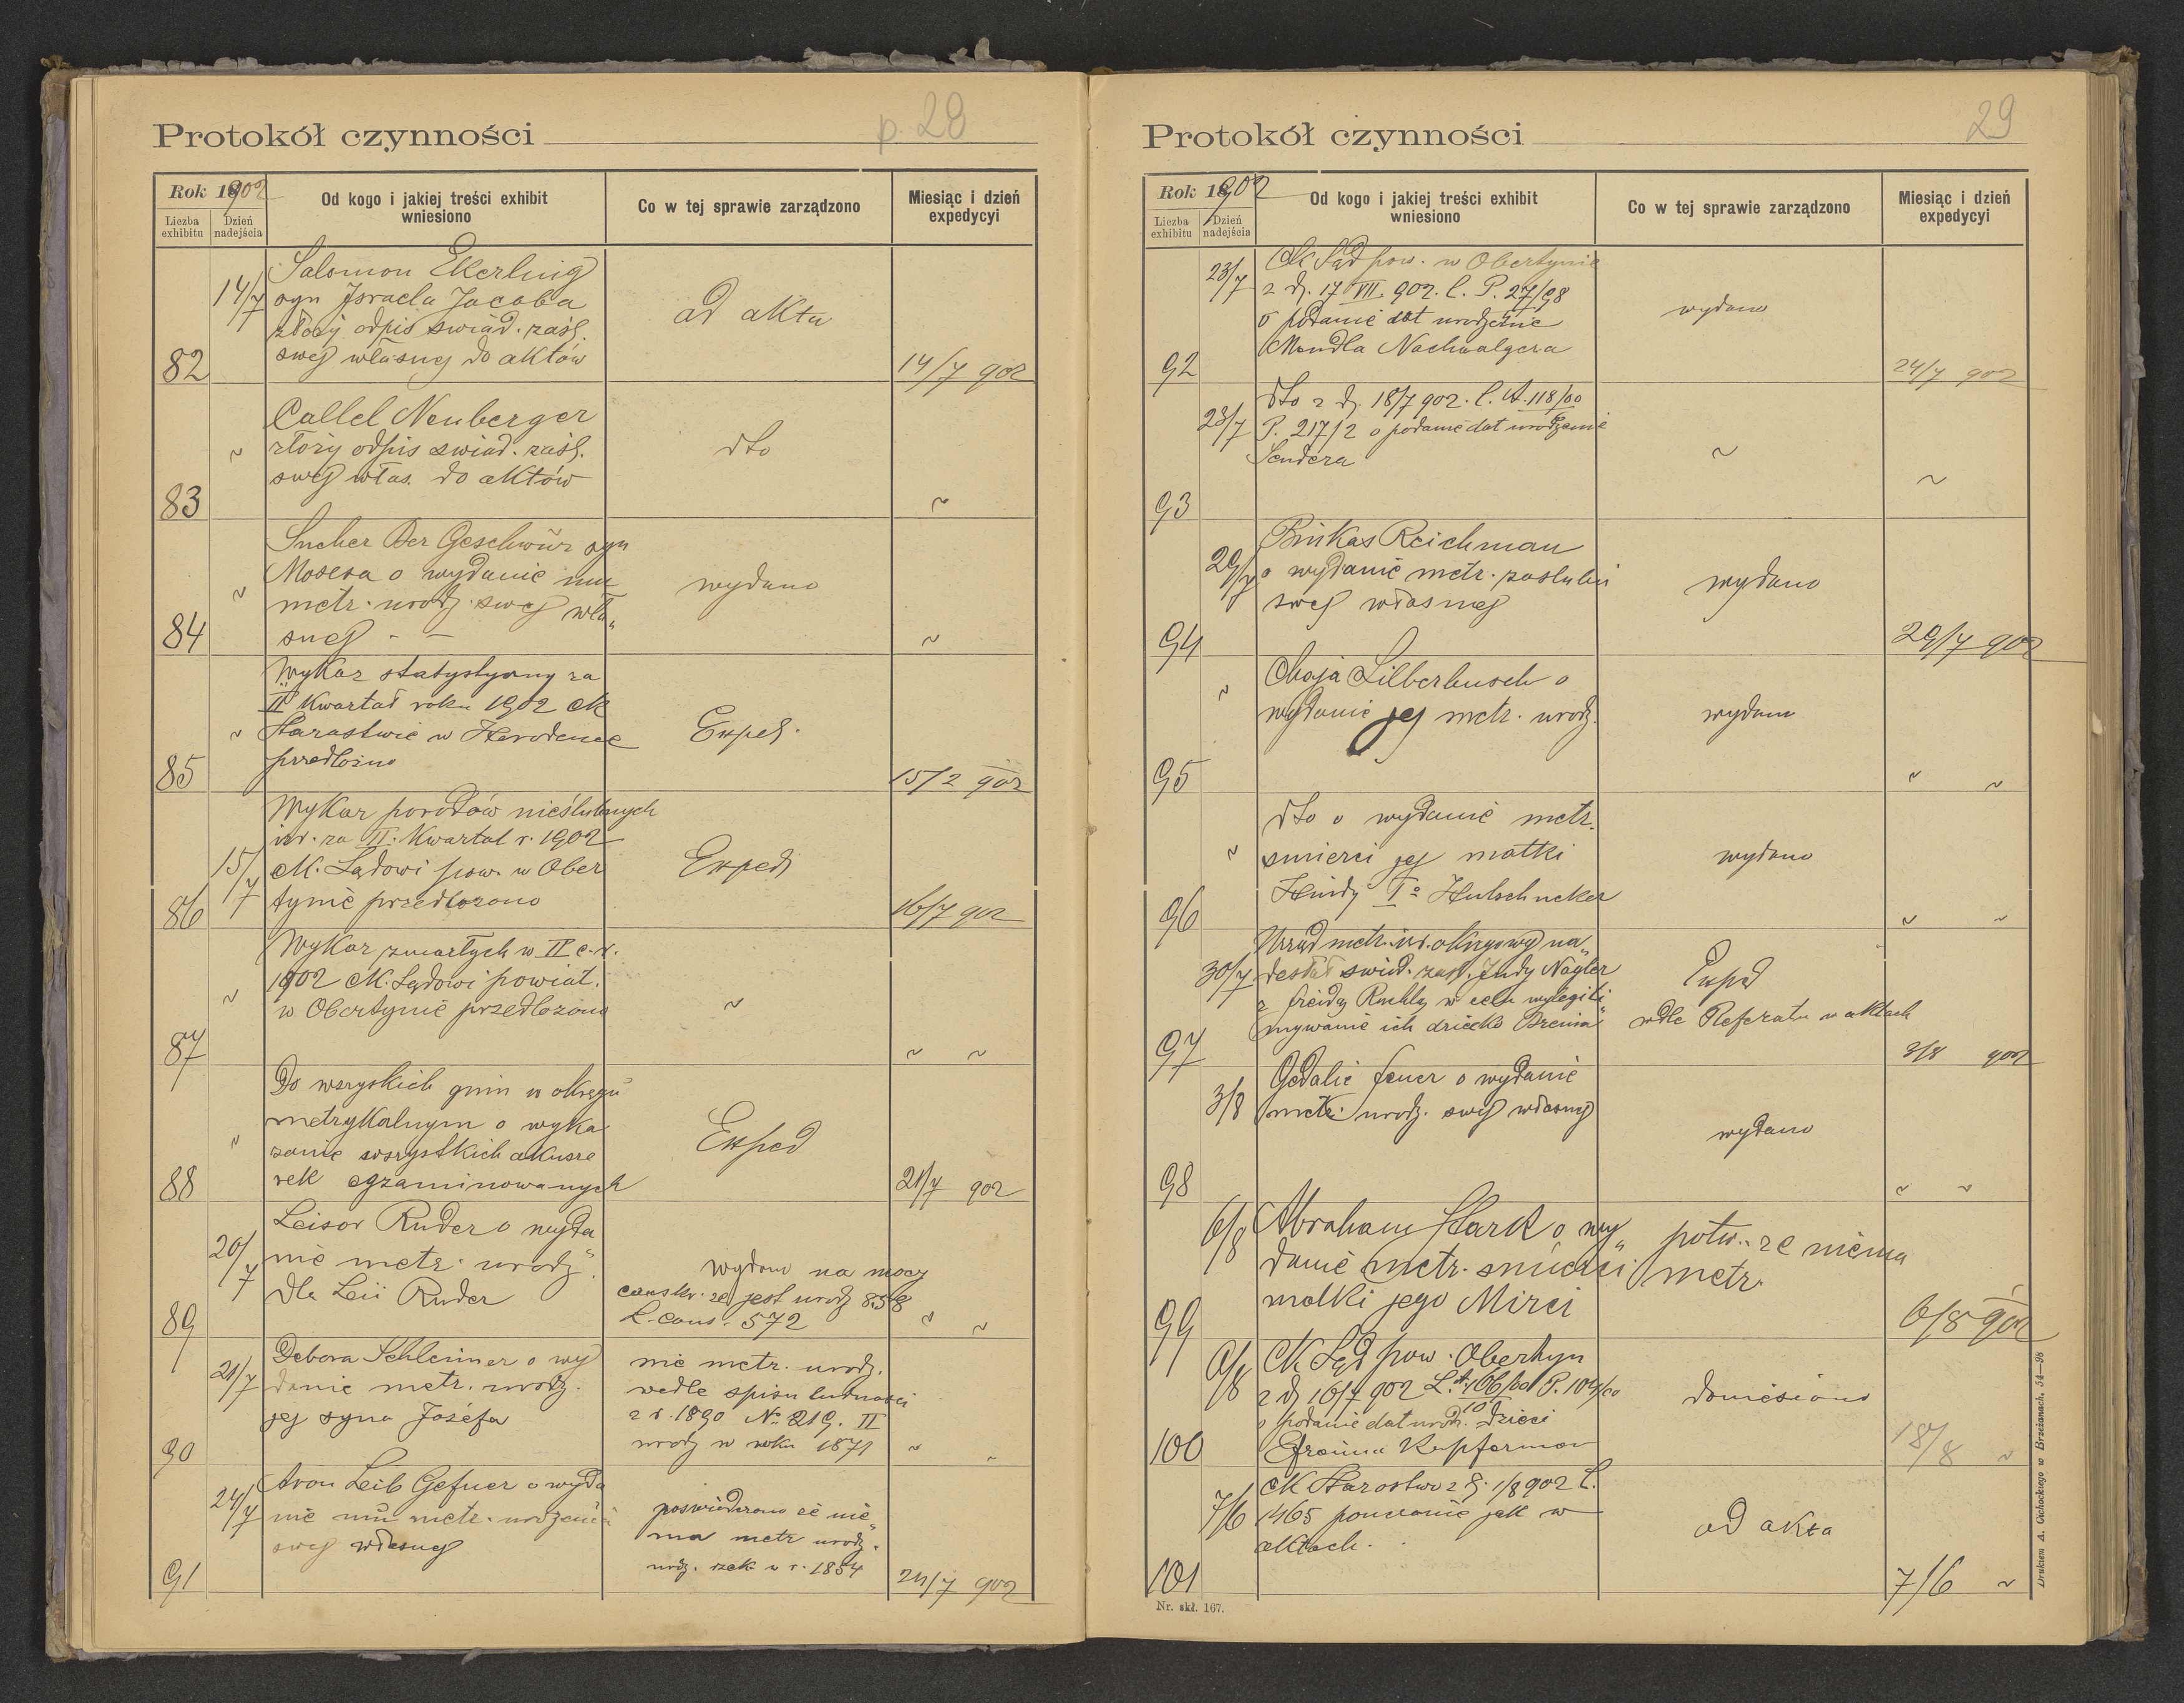 p. 28
Protokół czynności
Rok 1902
Liczba exhibitu
Dzień nadejścia
Od kogo i jakiej treści exhibit wniesiono
Co w tej sprawie zarządzono
Miesiąc i dzień expedycyi
82
14/7
Salomon Ekerling
syn Israela Jacoba
złoży odpis świad. zaśl.
swej własnej do aktów
ad akta
14/7 902
83
~
Callel Neuberger
złoży odpis świad. zaśl.
swej włas. do aktów
dto
~
84
~
Sucher Ber Geschwür syn
Mosesa o wydanie mu
metr. urodz. swej wła„
snej - —
wydano
~
85
~
Wykaz statystyczny za
II Kwartał roku 1902 ck
Starostwie w Horodence
przedłożno
Exped.
15/7 902
86
15/7
Wykaz porodów nieślubnych
izr. za II. Kwartał r. 1902
ck. Sądowi pow. w Ober
tynie przedłożono
Exped
16/7 902
87
~
Wykaz zmarłych w II c. r.
1902 ck. Sądowi powiat.
w Obertynie przedłożono
~
~ ~
88
~
Do wszystkich gmin w okręgu
metrykalnym o wyka
zanie wszystkich akusze
rek egzaminowanych
Exped
21/7 902
89
20/7
Leisor Ruder o wyda
nie metr. urodz.
dla Leii Ruder
Wydano na mocy
conskr. że jest urodz 858
L. cons. 572
~ ~
90
21/7
Debora Schleimer o wy
danie metr. urodz.
jej syna Józefa
nie metr. urodz.
wedle spisu ludności
z r. 1890 No 219. II
urodz w roku 1871
~ ~
91
24/7
Aron Leib Gefner o wyda
nie mu metr. urodzenia
swej własnej
poświadczono że nie„
ma metr urodz.
urodz. rzek w r. 1854
24/7 902
29
Protokół czynności
Rok 1902
Liczba exhibitu
Dzień nadejścia
Od kogo i jakiej treści exhibit wniesiono
Co w tej sprawie zarządzono
Miesiąc i dzień expedycyi
92
23/7
Ck Sąd pow. w Obertynie
z d. 17 VII. 902. l. P. 27/98
o podanie dat urodzenie
Mendla Nachwalgera
wydano
24/7 902
93
23/7
dto z d. 18/7 902. l. A. 118/00
P. 217/2 o podanie dat urodzenie
Sendera
~
~
94
29/7
Pinkas Reichman
o wydanie metr. zaslubi
swej własnej
wydano
29/7 902
95
~
Chaja Silberbusch o
wydanie jej metr. urodz.
wydano
~ ~
96
~
dto o wydanie metr.
smierci jej matki
Hindy Io Hutschneker
wydano
~ ~
97
30/7
Urząd metr. izr. okręgowy na„
desłał swiad. zasl. Judy Nagler
z Freidą Ruchlą w celu wylegiti„
mywanie ich dziecko Breina
Exped
wdle Referatu w aktach
3/8 902
98
3/8
Gedalie Feuer o wydanie
metr. urodz. swej własnej
wydano
~ ~
99
6/8
Abraham Stark o wy„
danie metr. smierci
matki jego Mirci
potw. że niema
metr.
6/8 902
100
6/8
Ck Sąd pow. Obertyn
z d. 16/7 902 L. A. 166/00 P. 104/00
10
o podanie dat urodz. dzieci
Efroima Kupferman
doniesiono
18/8 ~
101
7/6
ck Starostwo z d. 1/8 902 l.
1465 pouczenie jak w
aktach.
ad akta
7/6 ~
Nr. skł. 167.
Drukiem A. Cachockiego w Brzeżanach. 54—98